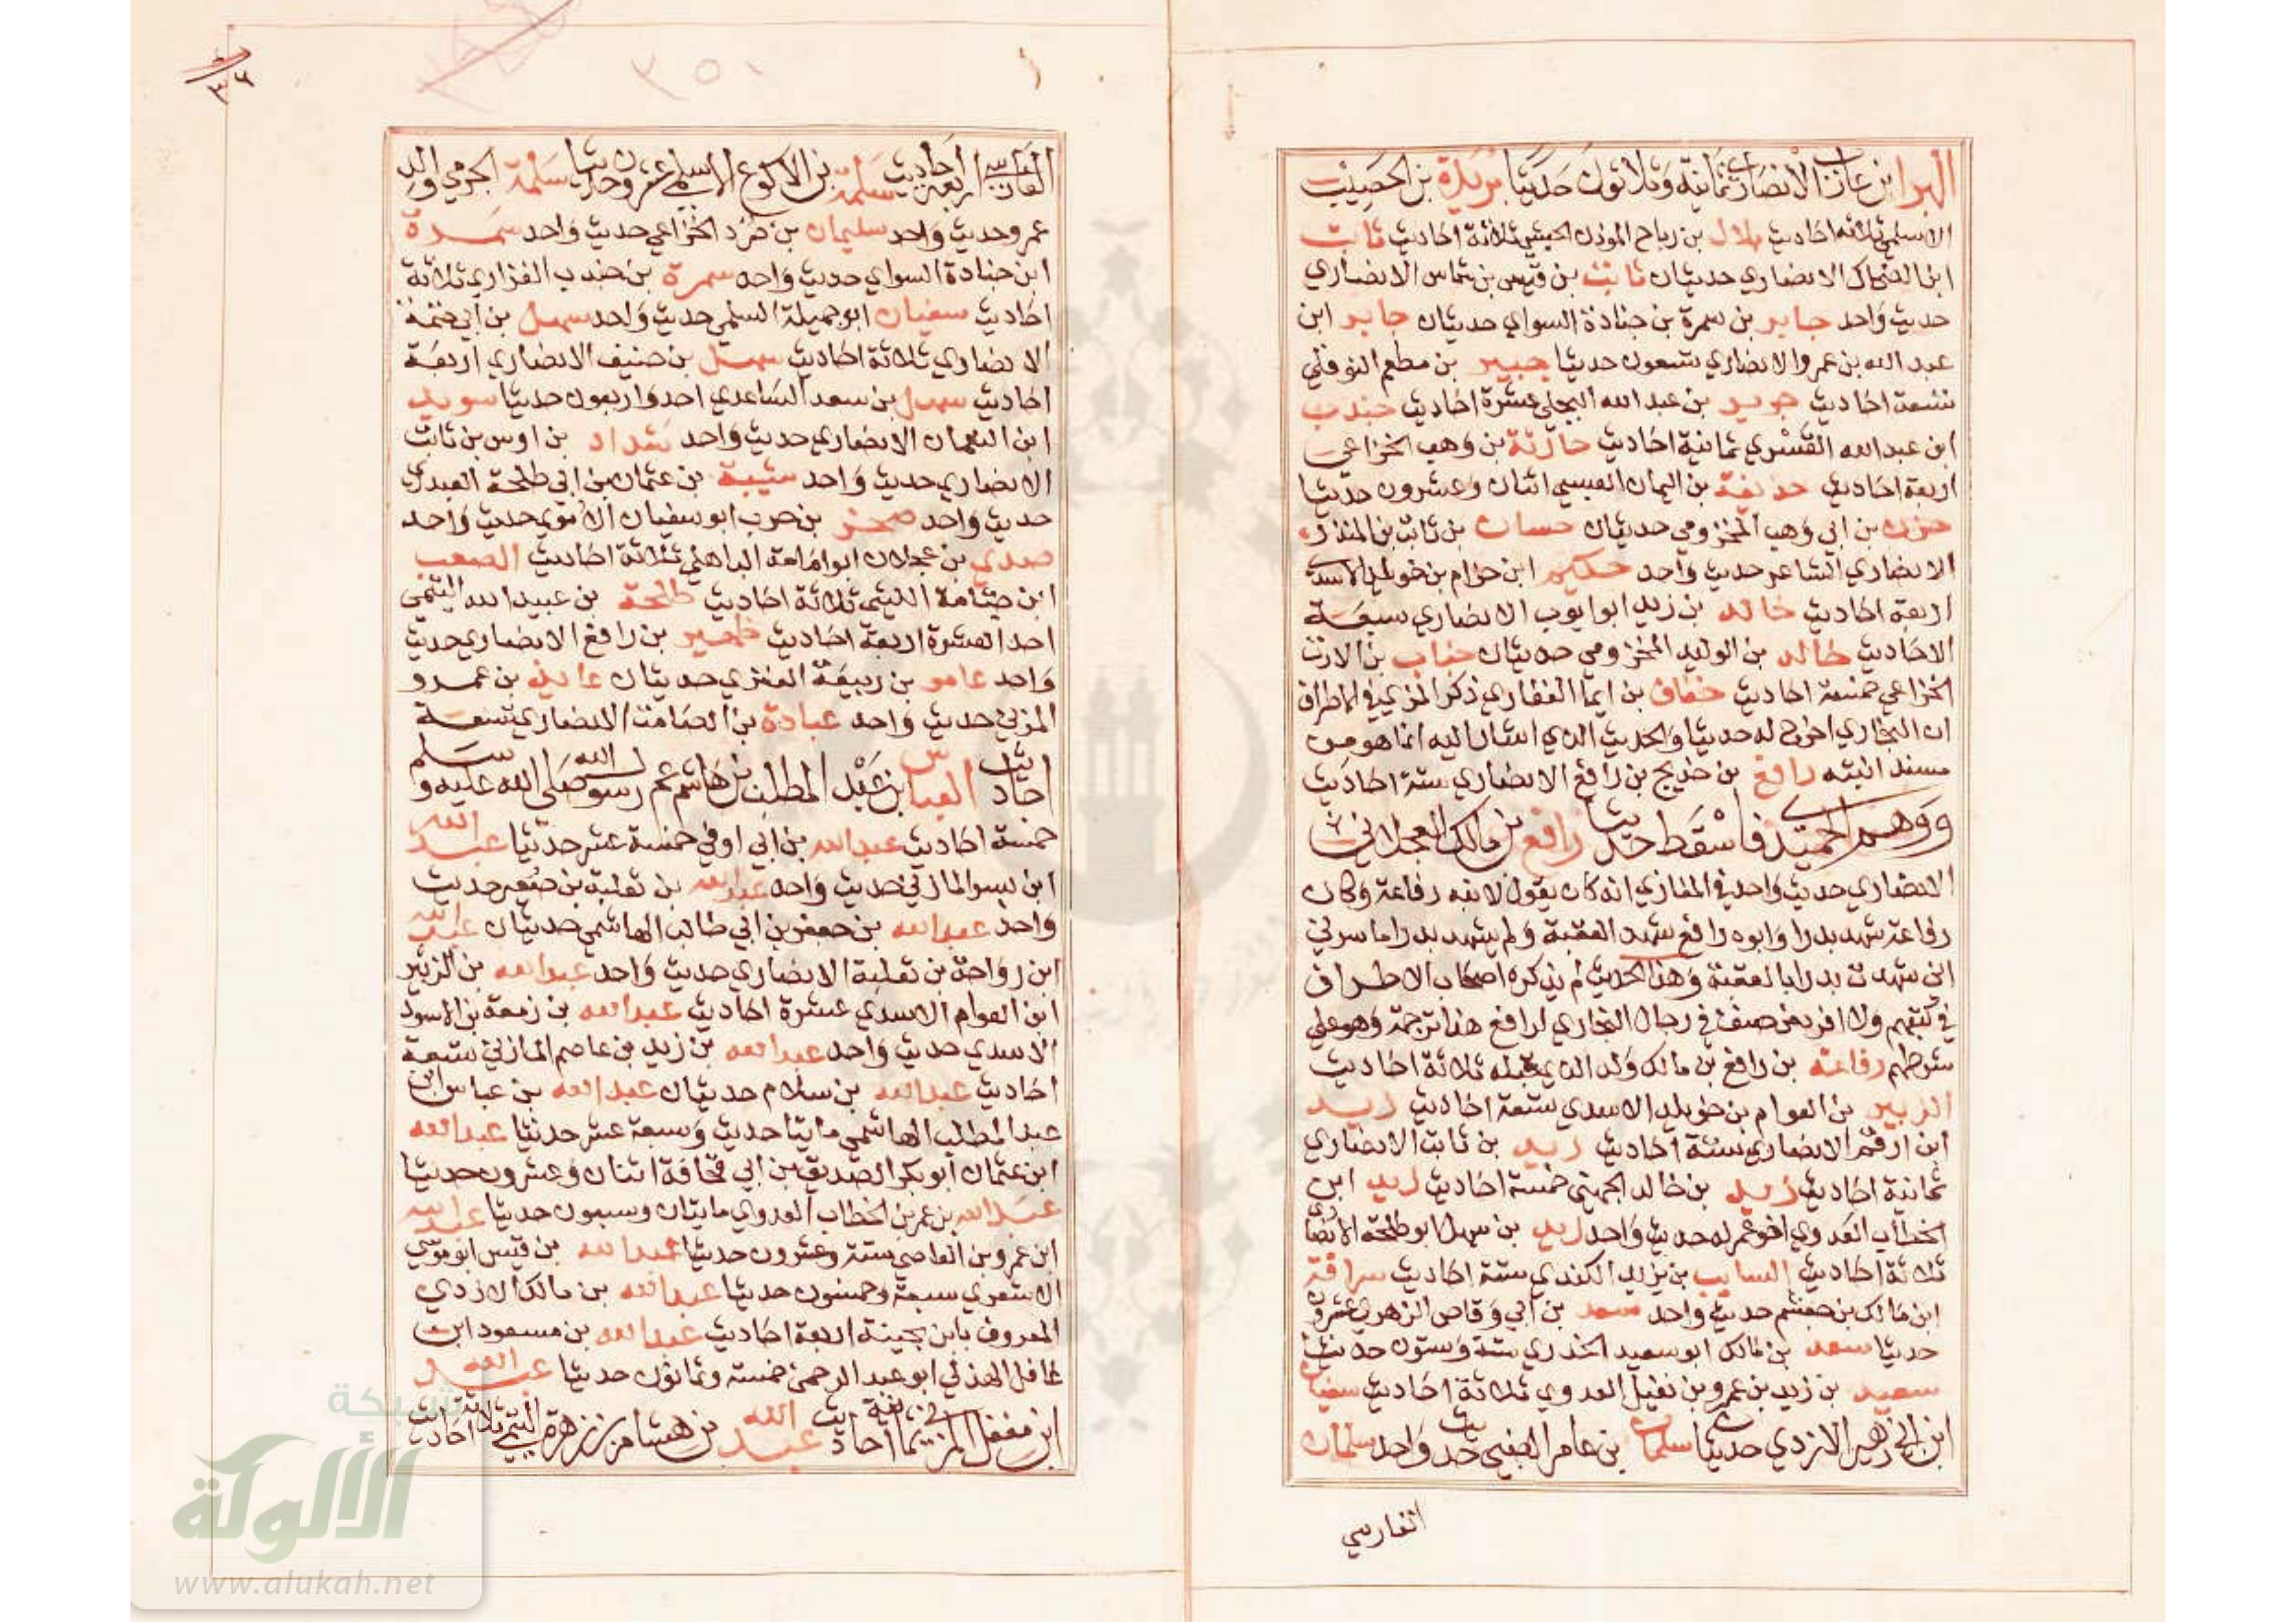 البرا ابن عازب الانصاري ثمانية وثلاثون حديثا بريدة بن الحصيب
الاسلمي ثلاثة احاديث بلال بن رباح الموذن الحبشي ثلاثة احاديث ثابت
ابن الضحاك الانصاري حديثان ثابت بن قيس بن شماس الانصاري
حديث واحد جابر بن سمرة بن جنادة السواي حديثان جابر ابن
عبد الله بن عمرو الانصاري تسعون حديثا جبير بن مطعم النوفلي
تسعة احاديث جرير بن عبد الله البجلي عشرة احاديث جندب
ابن عبد الله القسري ثمانية احاديث حارثة بن وهب الخزاعي
اربعة احاديث حذيفة بن اليمان العبسي اثنان وعشرون حديثا
حزن بن ابي وهب المخزومي حديثان حسان بن ثابت بن المنذر
الانصاري الشاعر حديث واحد حكيم ابن حزام بن خويلد الاسدي
اربعة احاديث خالد بن زيد ابو ايوب الانصاري سبعة
الاحاديث خالد بن الوليد المخزومي حديثان خباب بن الارت
الخزاعي خمسة احاديث خفاف بن ايما الغفاري ذكر المزي في الاطراف
ان البخاري اخرج له حديثا والحديث الذي اشار اليه انما هو من
مسند ابنته رافع بن خديج بن رافع الانصاري ستة احاديث
ووهم الحميدي فاسقط حديث رافع بن مالك العجلاني
الانصاري حديث واحد في المغازي انه كان يقول لابنه رفاعة وكان
رفاعة شهد بدرا وابوه رافع شهد العقبة ولم يشهد بدرا ما سرني
اني شهدت بدرا بالعقبة وهذا الحديث لم يذكره اصحاب الاطراف
في كتبهم ولا افرد من صنف في رجال البخاري لرافع هذا ترجمة وهو على
شرطهم رفاعة بن رافع بن مالك ولد الذي قبله ثلاثة احاديث
الزبير بن العوام بن خويلد الاسدي تسعة احاديث زيد
ابن ارقم الانصاري ستة احاديث زيد بن ثابت الانصاري
ثمانية احاديث زيد بن خالد الجهني خمسة احاديث زيد ابن
الخطاب العدوي اخو عمر له حديث واحد زيد بن سهل ابو طلحة الانصاري
ثلاثة احاديث السايب بن يزيد الكندي ستة احاديث سراقة
ابن مالك بن جعشم حديث واحد سعد بن ابي وقاص الزهري عشرون
حديثا سعد بن مالك ابو سعيد الخدري ستة وستون حديثا
سعيد بن زيد بن عمرو بن نفيل العدوي ثلاثة احاديث سفيان
ابن ابي زهير الازدي حديثان سلمان بن عامر الضبي حديث واحد سلمان
الفارسي
٣٥٠
٣٦
الفارسي اربعة احاديث سلمة بن الاكوع الاسلمي عشرون حديثا سلمة الجرمي والد
عمرو حديث واحد سليمان بن صرد الخزاعي حديث واحد سمرة
ابن جنادة السواي حديث واحد سمرة بن جندب الفزاري ثلاثة
احاديث سفيان ابو جميلة السلمي حديث واحد سهل بن ابي حثمة
الانصاري ثلاثة احاديث سهل بن حنيف الانصاري اربعة
احاديث سهل بن سعد الساعدي احد واربعون حديثا سويد
ابن النعمان الانصاري حديث واحد شداد بن اوس بن ثابت
الانصاري حديث واحد شيبة بن عثمان بن ابي طلحة العبدري
حديث واحد صخر بن حرب ابو سفيان الاموي حديث واحد
صدي بن عجلان ابو امامة الباهلي ثلاثة احاديث الصعب
ابن جثامة الليثي ثلاثة احاديث طلحة بن عبيد الله التيمي
احد العشرة اربعة احاديث ظهير بن رافع الانصاري حديث
واحد عامر بن ربيعة العنزي حديثان عايذ بن عمرو
المزني حديث واحد عبادة بن الصامت الانصاري تسعة
احاديث العباس بن عبد المطلب بن هاشم عم رسول الله صلى الله عليه وسلم
خمسة احاديث عبد الله بن ابي اوفى خمسة عشر حديثا عبد الله
ابن بسر المازني حديث واحد عبد الله بن ثعلبة بن صعير حديث
واحد عبد الله بن جعفر بن ابي طالب الهاشمي حديثان عبد الله
ابن رواحة بن ثعلبة الانصاري حديث واحد عبد الله بن الزبير
ابن العوام الاسدي عشرة احاديث عبد الله بن زمعة بن الاسود
الاسدي حديث واحد عبد الله بن زيد بن عاصم المازني تسعة
احاديث عبد الله بن سلام حديثان عبد الله بن عباس ابن
عبد المطلب الهاشمي مايتا حديث وسبعة عشر حديثا عبد الله
ابن عثمان ابو بكر الصديق بن ابي قحافة اثنان وعشرون حديثا
عبد الله بن عمر بن الخطاب العدوي مايتان وسبعون حديثا عبد الله
ابن عمرو بن العاصي ستة وعشرون حديثا عبد الله بن قيس ابو موسى
الاشعري سبعة وخمسون حديثا عبد الله بن مالك الازدي
المعروف بابن بحينة اربعة احاديث عبد الله بن مسعود ابن
غافل الهذلي ابو عبد الرحمن خمسة وثمانون حديثا عبد الله
ابن مغفل المزني ثمانية احاديث عبد الله بن هشام بن زهرة التيمي ثلاثة احاديث
شبكة
الألوكة
www.alukah.net